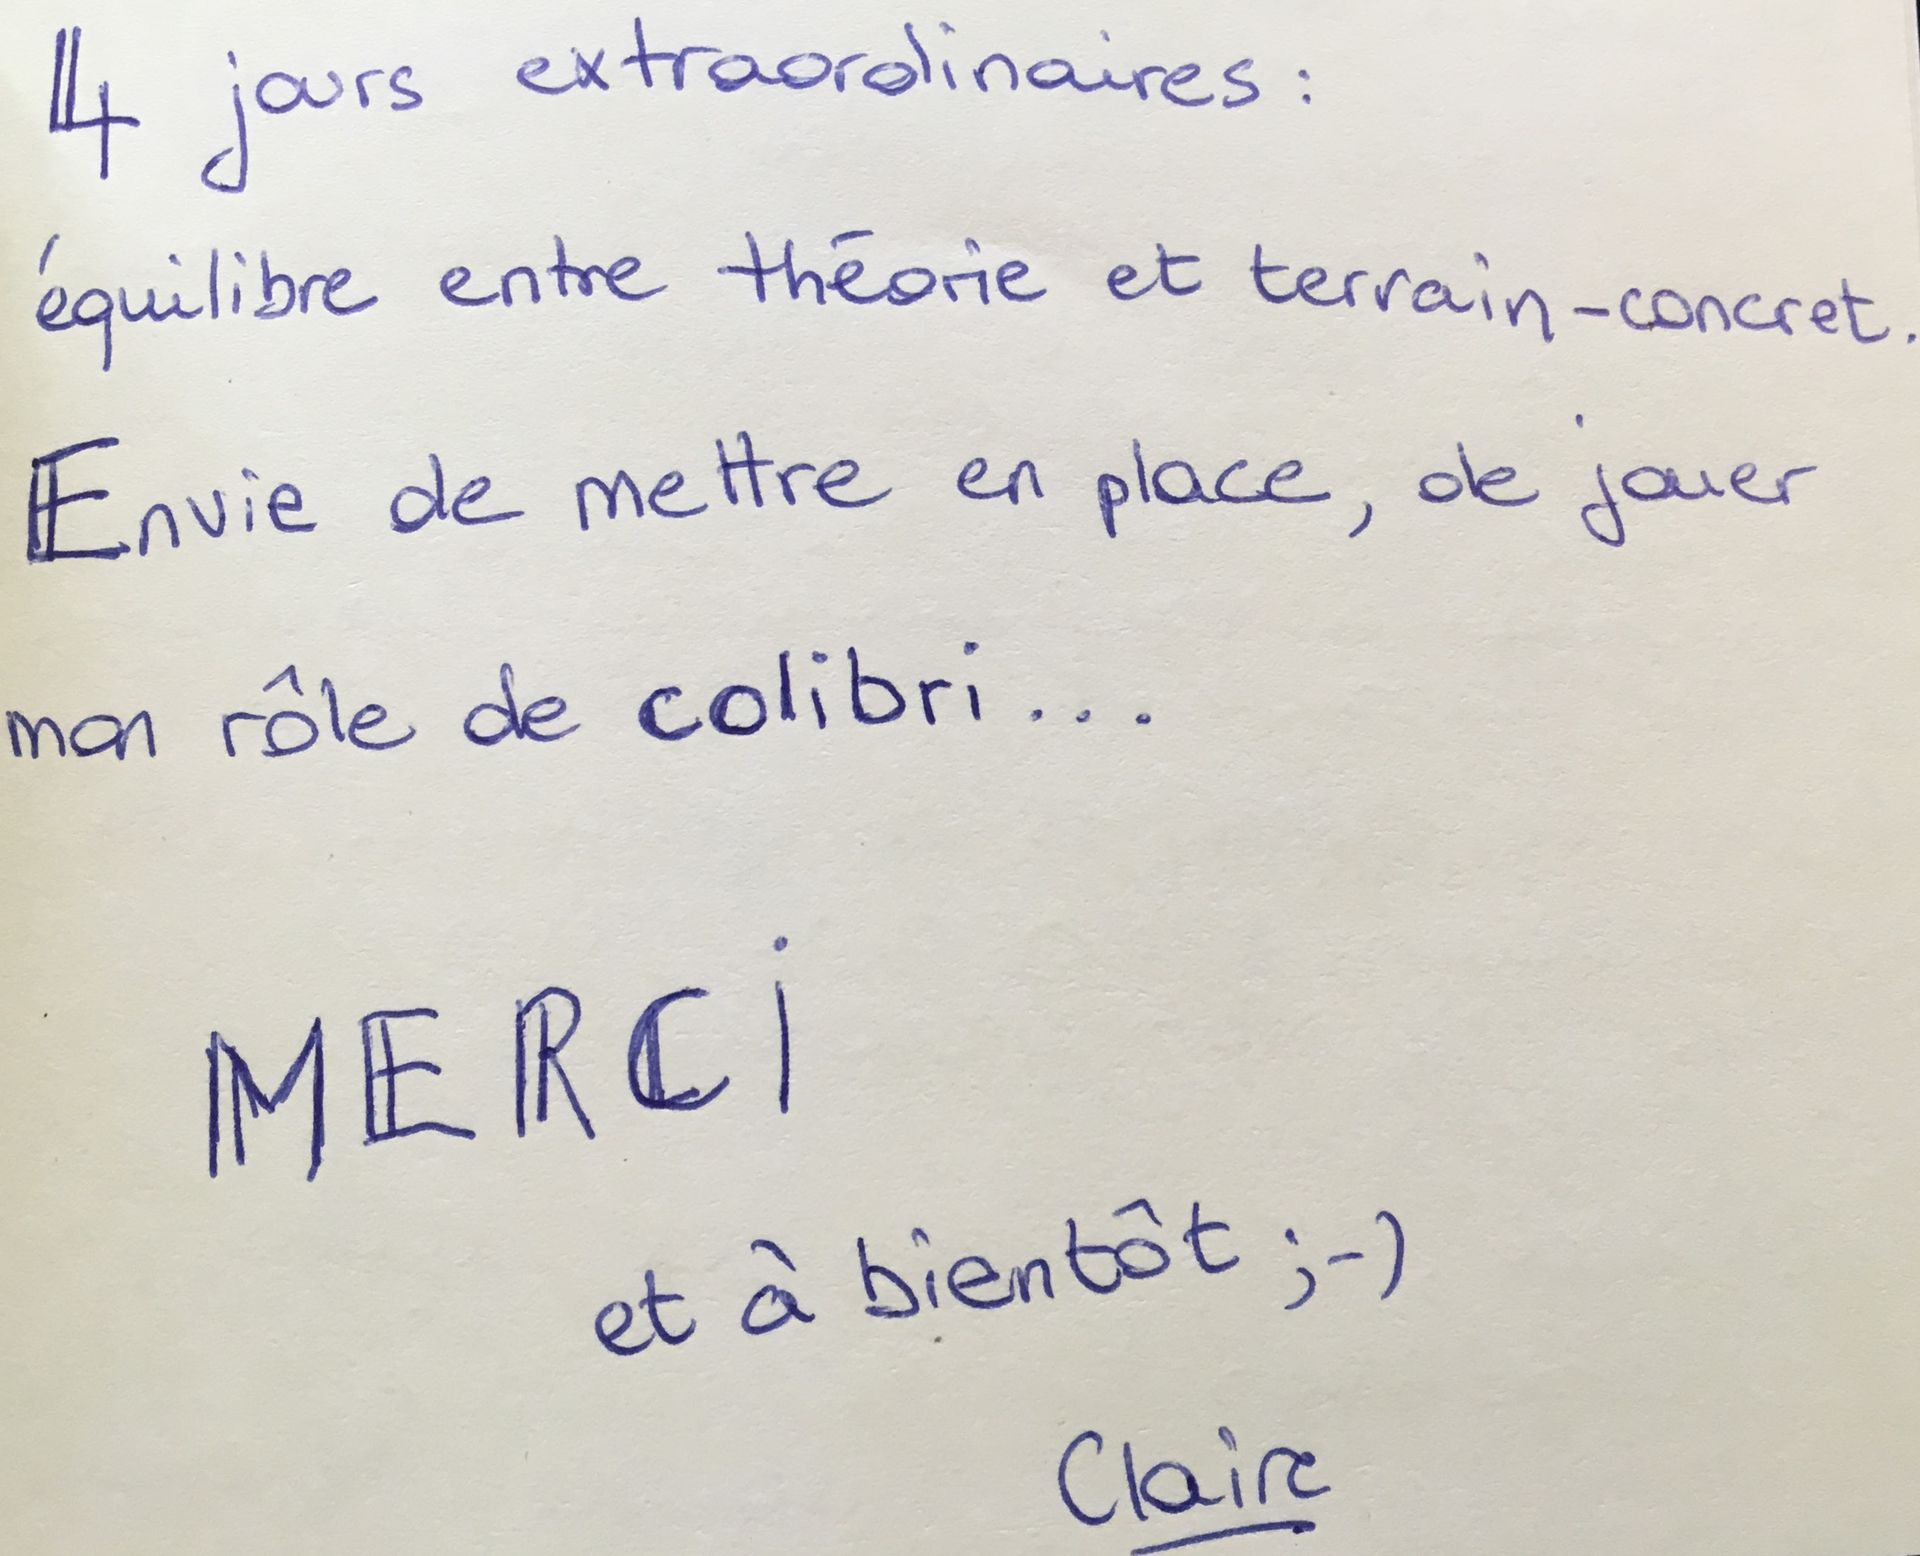 4 jours extraordinaires :
équilibre entre théorie et terrain-concret.
Envie de mettre en place, de jouer
mon rôle de colibri...
MERCi
et à bientôt ;-)
Claire